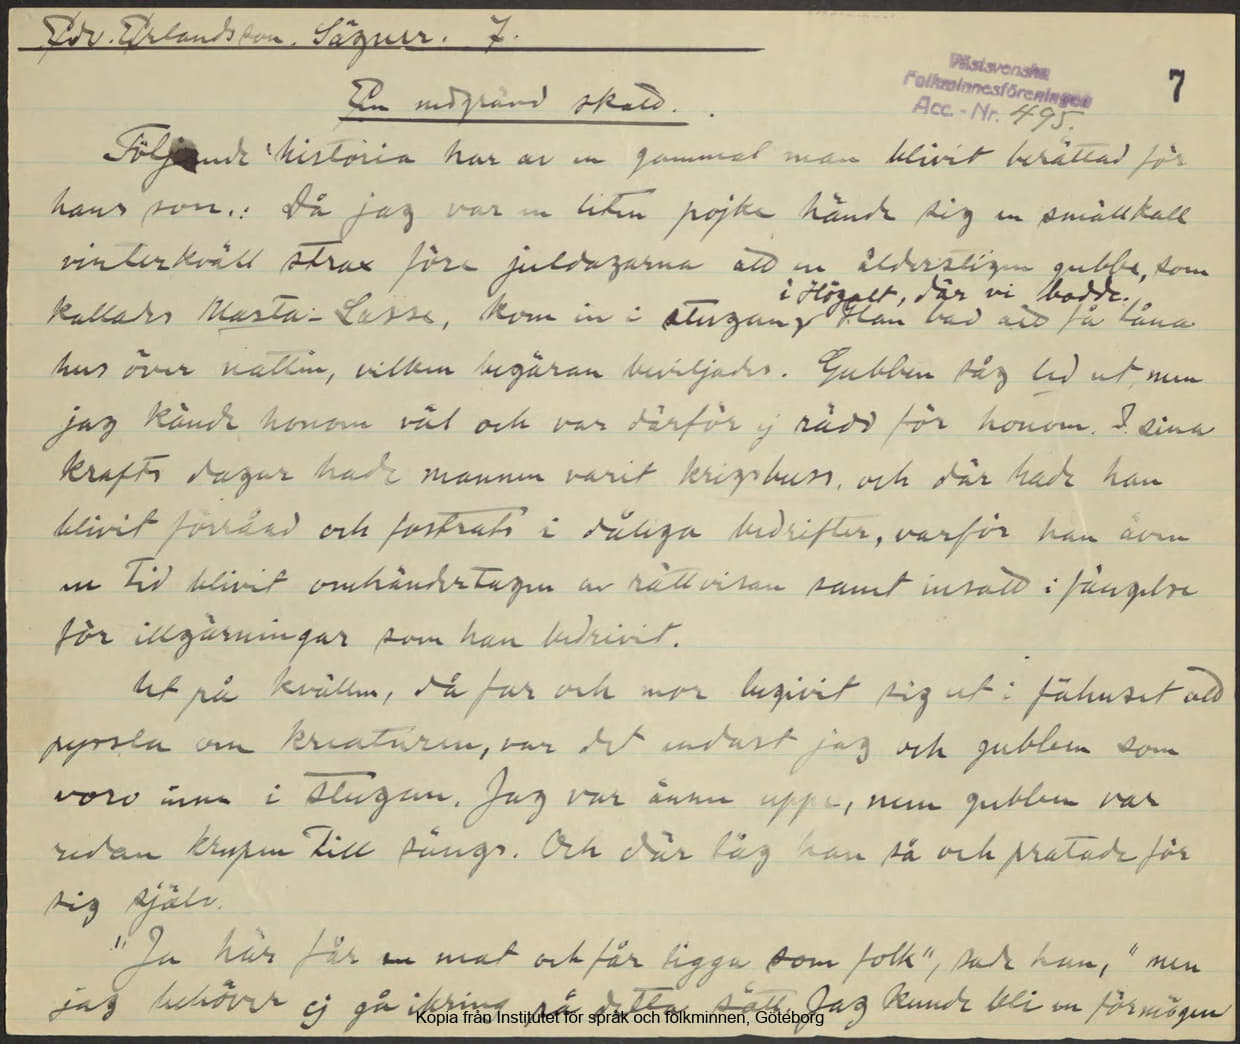 Edv. Erlandsson. Sägner. 7.
Västsvenska
Folkminnesföreningen
Acc. - Nr. 495.
7
En nedgrävd skatt.
Följande historia har av en gammal man blivit berättad för
hans son.: Då jag var en liten pojke hände sig en smällkall
vinterkväll strax före juldagarna att en ålderstigen gubbe, som
i Högalt, där vi bodde.
kallades Masta-Lasse, kom in i stugan, Han bad att få låna
hus över natten, vilken begäran beviljades. Gubben såg led ut, men
jag kände honom väl och var därför ej rädd för honom. I sina
krafts dagar hade mannen varit krigsbuss, och där hade han
blivit förråad och fostrats i dåliga bedrifter, varför han även
en tid blivit omhändertagen av rättvisan samt insatt i fängelse
för illgärningar som han bedrivit.
Ut på kvällen, då far och mor begivit sig ut i fähuset att
pyssla om kreaturen, var det endast jag och gubben som
voro inne i stugan. Jag var ännu uppe, men gubben var
redan krupen till sängs. Och där låg han så och pratade för
sig själv.
"Ja här får en mat och får ligga som folk", sade han, "men
jag behöver ej gå ikring på detta sätt. Jag kunde bli en förmögen
Kopia från Institutet för språk och folkminnen, Göteborg